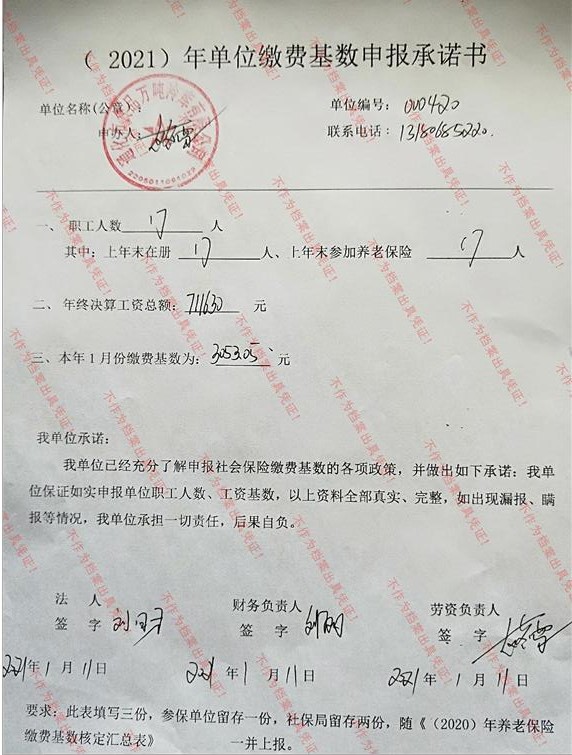 （2021）年单位缴费基数申报承诺书
单位名称(公章)
单位编号：000420
申办人：
联系电话：13180685220.
2205011061022
一、 职工人数 17 人
其中：上年末在册 17 人、上年末参加养老保险 17 人
二、 年终决算工资总额：711630 元
三、本年1月份缴费基数为：3053.05 元
我单位承诺：
我单位已经充分了解申报社会保险缴费基数的各项政策，并做出如下承诺：我单
位保证如实申报单位职工人数、工资基数，以上资料全部真实、完整，如出现漏报、瞒
报等情况，我单位承担一切责任，后果自负。
法 人 财务负责人 劳资负责人
签 字 签 字 刘明 签 字
2021年1月11日 2021年1月11日 2021年1月11日
要求：此表填写三份，参保单位留存一份，社保局留存两份，随《（2020）年养老保险
缴费基数核定汇总表》 一并上报。
不作为档案出具凭证！